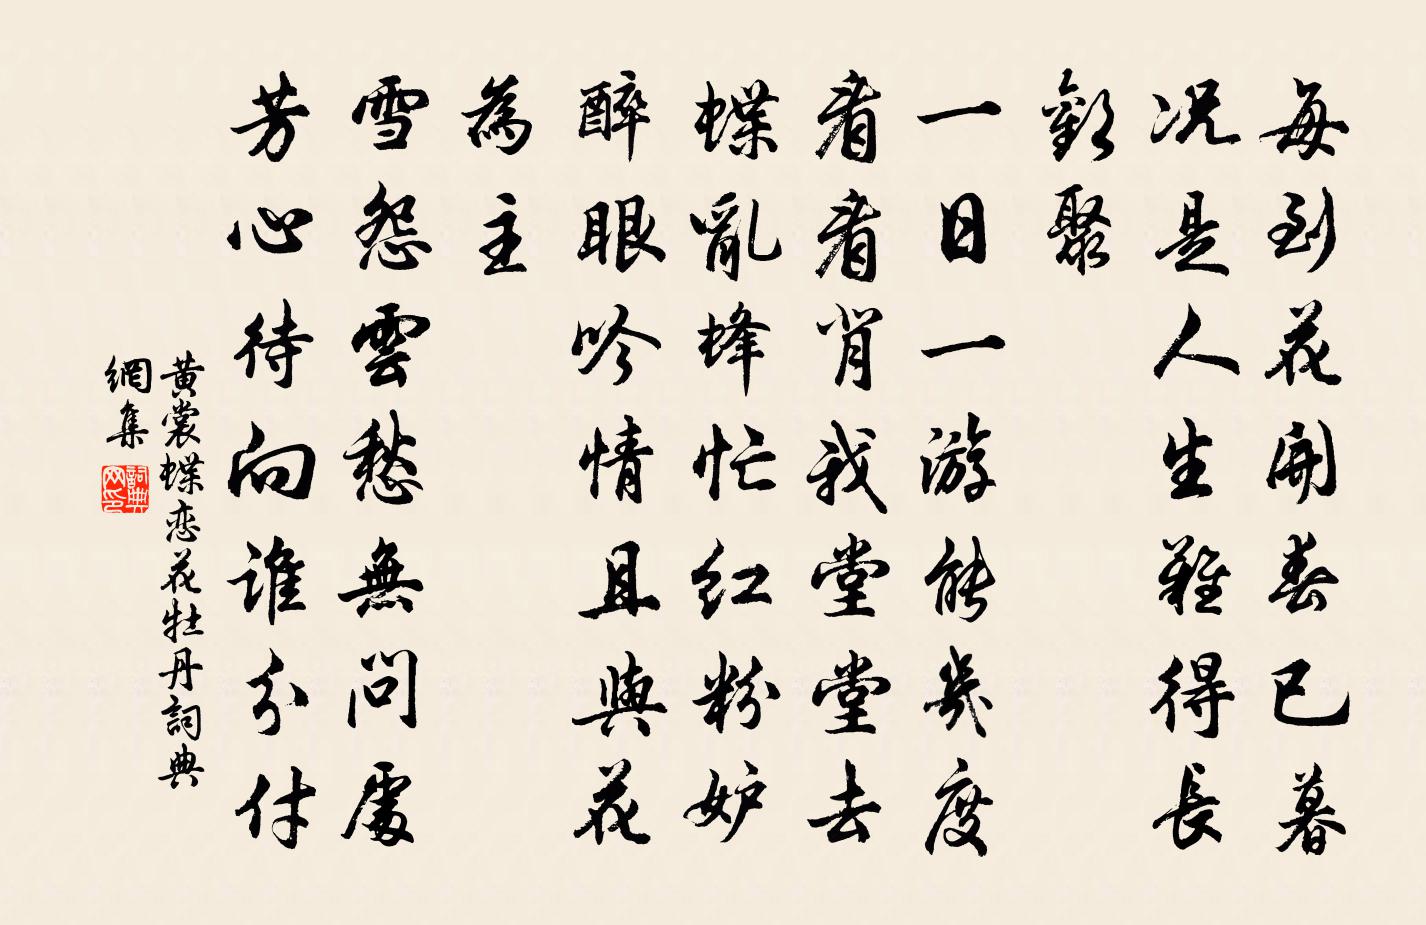 每到花開春已暮
况是人生難得長
歡聚
一日一游能幾度
看看背我堂堂去
蝶亂蜂忙紅粉妒
醉眼吟情且與花
為主
雪怨雲愁無問處
芳心待向誰分付
黄裳蝶恋花牡丹詞典
網集
詞典
网印